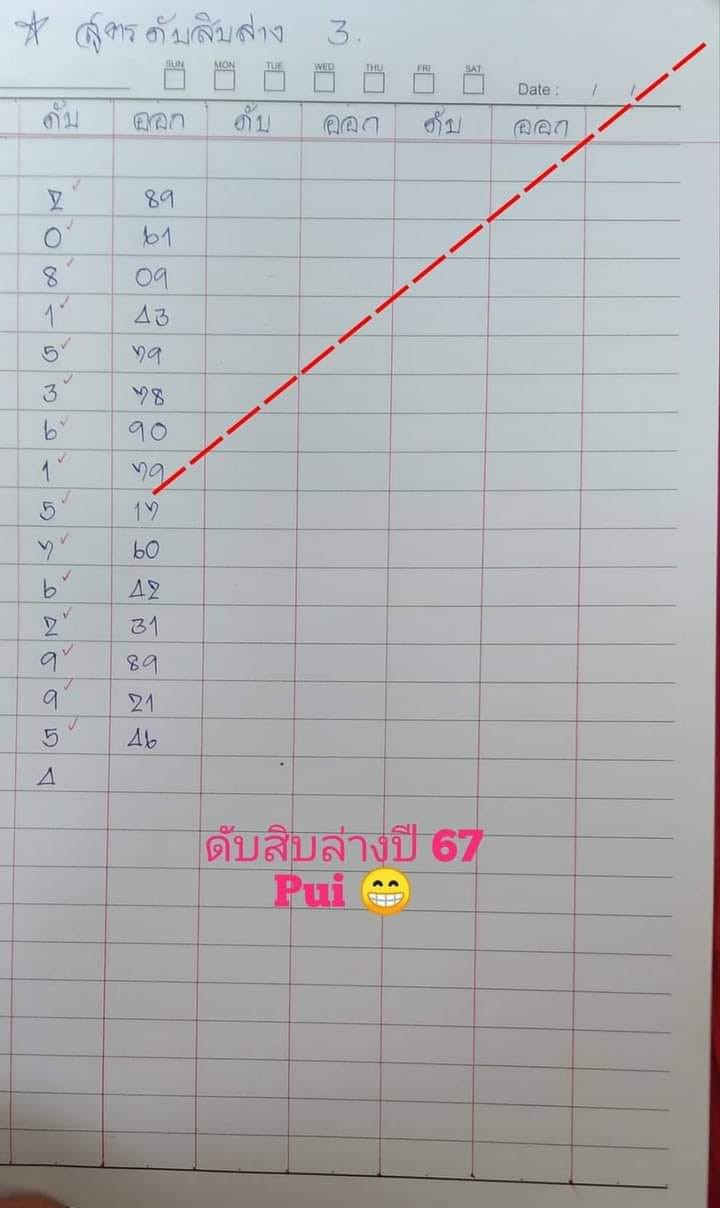 ☆ สูตรดับสิบล่าง 3.
SUN MON TUE WED THU FRI SAT
Date : / /
ดับ ออก ดับ ออก ดับ ออก
2 ✓ 89
0 ✓ 61
8 ✓ 09
1 ✓ 43
5 ✓ 79
3 ✓ 78
6 ✓ 90
1 ✓ 79
5 ✓ 17
7 ✓ 60
6 ✓ 42
2 ✓ 31
9 ✓ 89
9 ✓ 21
5 ✓ 46
4
ดับสิบล่างปี 67
Pui 😁